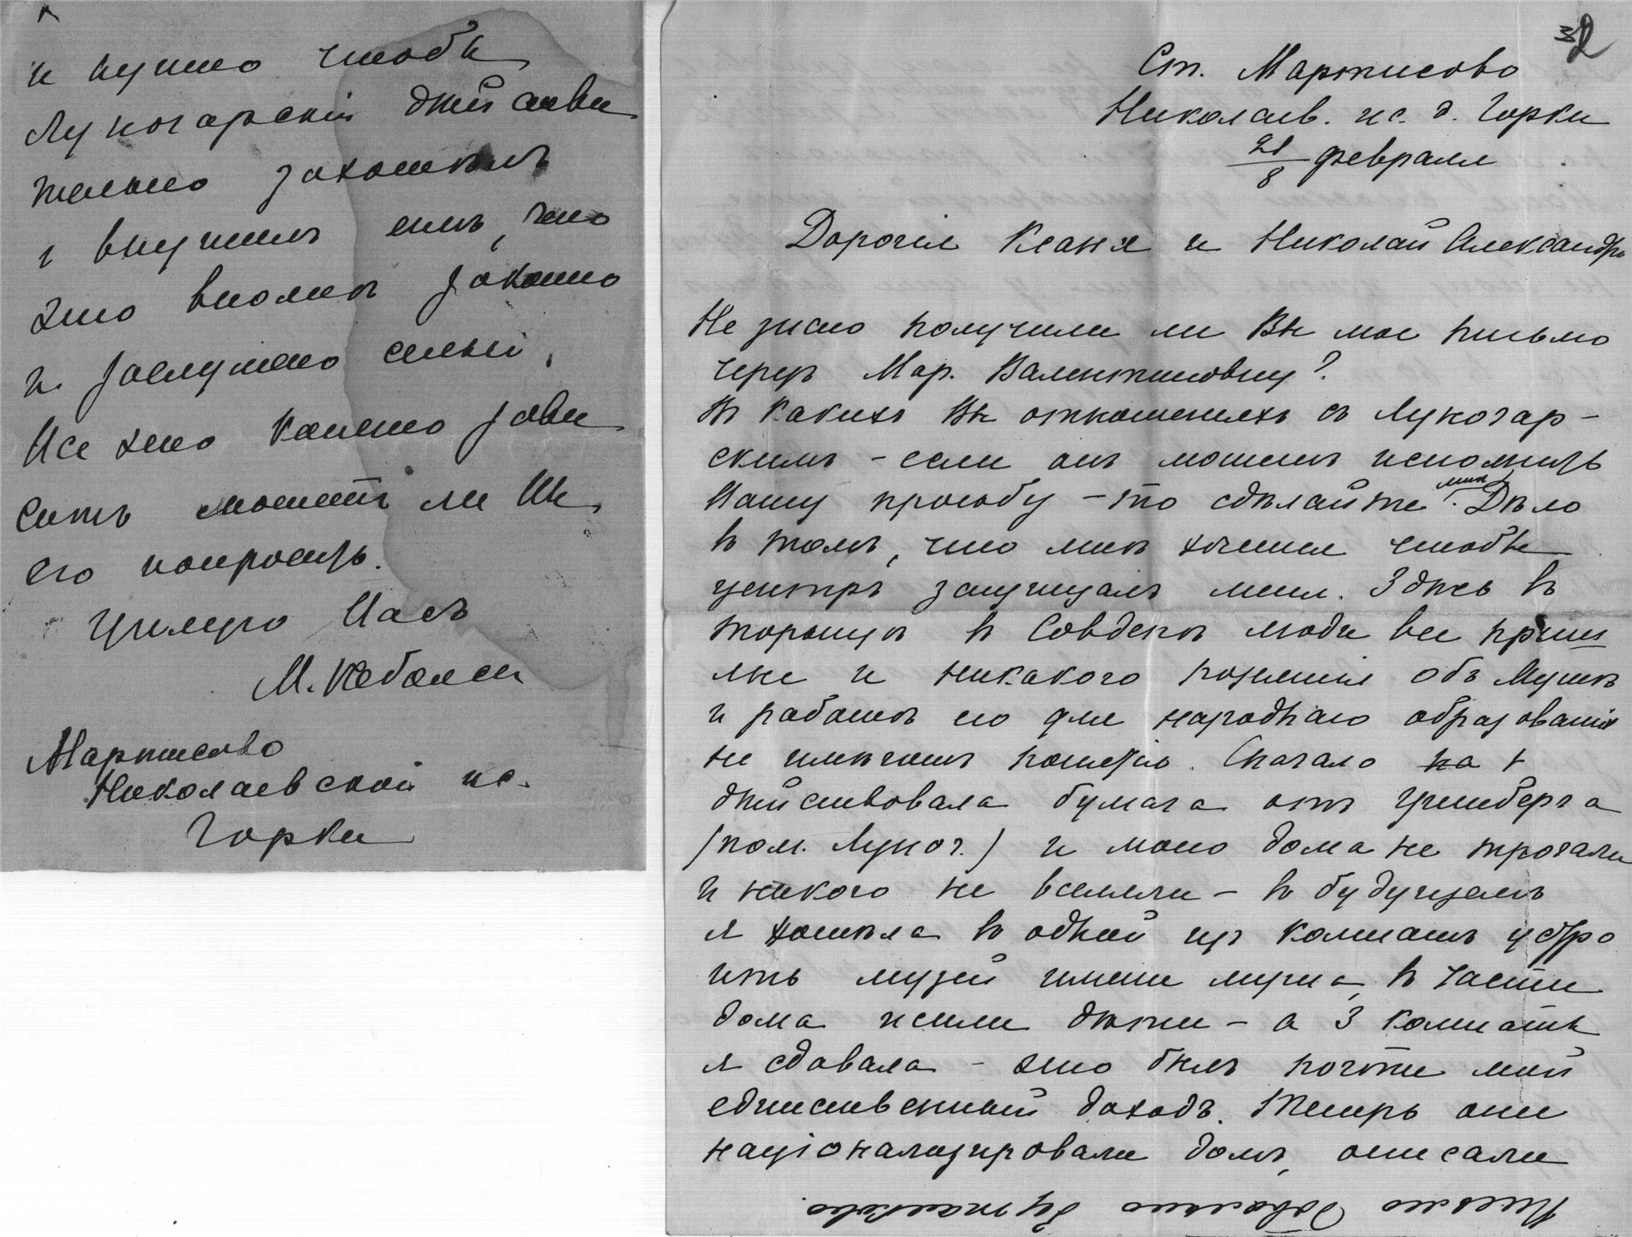 и нужно чтобы
Луначарскій действи
тельно захотѣлъ
и внушилъ имъ, что
это вполнѣ законно
и заслужено семьей.
Все это конечно зави
ситъ можете ли Вы
его попросить.
Цѣлую Васъ
М.
Мартисово
Николаевской жс.
Горки
Ст. Мартисово
Николаев. жс. д. Горки
21/8 февраля
Дорогіе Ксаня и Николай Александр
Не знаю получили ли Вы мое письмо
черезъ Мар. Валентиновну?
Въ какихъ Вы отношеніяхъ съ Луначар-
скимъ - если онъ можетъ исполнить
Вашу просьбу - то сдѣлайте мнѣ. Дѣло
въ томъ, что мнѣ хочется чтобы
центръ защищалъ меня. Здѣсь въ
въ Совдепѣ люди все приш
лые и никакого понятія объ Мужѣ
и работѣ его для народнаго образованія
не имѣютъ понятія. Сначало на
дѣйствовала бумага отъ Гринберга
(пом. Лунач.) и моего дома не трогали
и никого не вселяли - въ будущемъ
я хотѣла въ одной изъ комнатъ устро
ить музей имени мужа, въ части
дома жили дѣти - а 3 комнаты
я сдавала - это былъ почти мой
единственный доходъ. Теперь они
націонализировали домъ, описали
Письмо довольно